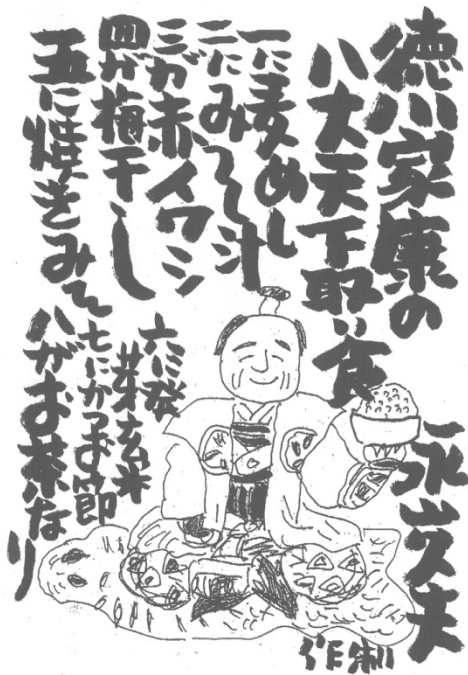 徳川家康の
八大天下取り食
永山久夫
一に麦めし
二にみそ汁
三が赤イワシ
四が梅干し
五に焼きみそ
六に発
芽玄米
七にかつお節
八がお茶なり